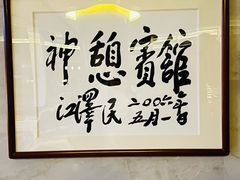 神憩賓舘
江澤民 二〇〇六年
五月一日